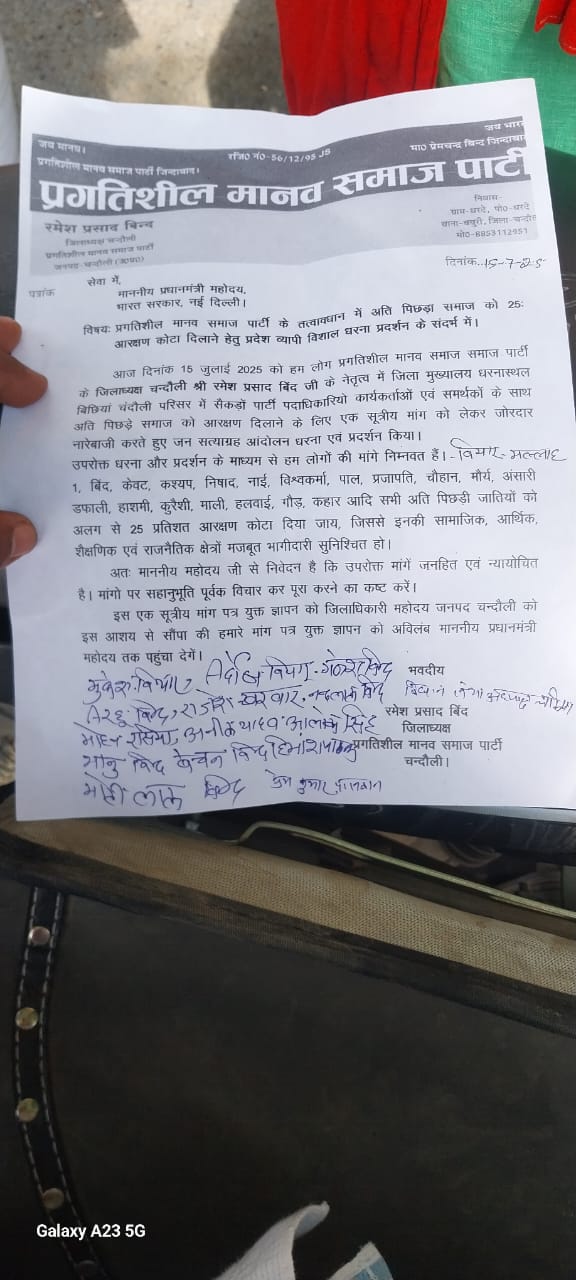 जय मानव।
रजि0 नं0-56/12/95 JS
जय भारत
प्रगतिशील मानव समाज पार्टी जिन्दाबाद।
मा0 प्रेमचन्द्र बिन्द जिन्दाबाद
प्रगतिशील मानव समाज पार्टी
रमेश प्रसाद बिन्द
जिलाध्यक्ष चन्दौली
प्रगतिशील मानव समाज पार्टी
जनपद-चन्दौली (उ0प्र0)
निवास-
ग्राम-धरदे, पो0-धरदे
थाना-बबुरी, जिला-चन्दौली
मो0-8853112951
पत्रांक
दिनांक..15-7-25
सेवा में,
माननीय प्रधानमंत्री महोदय,
भारत सरकार, नई दिल्ली।
विषयः प्रगतिशील मानव समाज पार्टी के तत्वावधान में अति पिछड़ा समाज को 25:
आरक्षण कोटा दिलाने हेतु प्रदेश व्यापी विशाल धरना प्रदर्शन के संदर्भ में।
आज दिनांक 15 जुलाई 2025 को हम लोग प्रगतिशील मानव समाज समाज पार्टी
के जिलाध्यक्ष चन्दौली श्री रमेश प्रसाद बिंद जी के नेतृत्व में जिला मुख्यालय धरनास्थल
बिछियां चंदौली परिसर में सैकड़ों पार्टी पदाधिकारियो कार्यकर्ताओं एवं समर्थकों के साथ
अति पिछड़े समाज को आरक्षण दिलाने के लिए एक सूत्रीय मांग को लेकर जोरदार
नारेबाजी करते हुए जन सत्याग्रह आंदोलन धरना एवं प्रदर्शन किया।
उपरोक्त धरना और प्रदर्शन के माध्यम से हम लोगों की मांगे निम्नवत हैं।- बियार- मल्लाह
1, बिंद, केवट, कश्यप, निषाद, नाई, विश्वकर्मा, पाल, प्रजापति, चौहान, मौर्य, अंसारी
डफाली, हाशमी, कुरैशी, माली, हलवाई, गौड़, कहार आदि सभी अति पिछड़ी जातियों को
अलग से 25 प्रतिशत आरक्षण कोटा दिया जाय, जिससे इनकी सामाजिक, आर्थिक,
शैक्षणिक एवं राजनैतिक क्षेत्रों मजबूत भागीदारी सुनिश्चित हो।
अतः माननीय महोदय जी से निवेदन है कि उपरोक्त मांगें जनहित एवं न्यायोचित
है। मांगो पर सहानुभूति पूर्वक विचार कर पूरा करने का कष्ट करें।
इस एक सूत्रीय मांग पत्र युक्त ज्ञापन को जिलाधिकारी महोदय जनपद चन्दौली को
इस आशय से सौंपा की हमारे मांग पत्र युक्त ज्ञापन को अविलंब माननीय प्रधानमंत्री
महोदय तक पहुंचा देगें।
भवदीय
मुकेश बियार,
बिन्द, राजेश खरवार, नन्दलाल बिन्द
रमेश प्रसाद बिंद
मोहन अनील यादव आलोक सिंह
जिलाध्यक्ष
भानु बिन्द कंचन बिन्द
प्रगतिशील मानव समाज पार्टी
चन्दौली।
लाल बिन्द प्रेम कुमार
Galaxy A23 5G